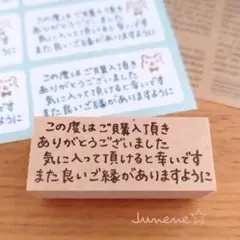 この度はご購入頂き
ありがとうございました
気に入って頂けると幸いです
また良いご縁がありますように
この度はご購入頂き
ありがとうございました
気に入って頂けると幸いです
また良いご縁がありますように
Junene☆